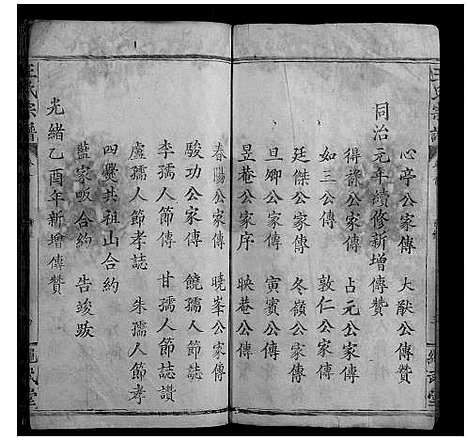 心亭公家傳　大猷公傳贊
同治元年續修新增傳贊
得齡公家傳　占元公家傳
如三公傳　敦仁公家傳
廷傑公家傳　冬嶺公家傳
旦卿公家傳　寅賓公家傳
昱菴公家序　映菴公傳
春陽公家傳　曉峯公家傳
駿功公家傳　饒孺人節誌
李孺人節傳　甘孺人節誌讚
盧孺人節孝誌　朱孺人節孝
四舉共祖山合約
藍家畈合約　告竣跋
光緒乙酉年新增傳贊
王氏宗譜
繩武堂
王氏宗譜
繩武堂